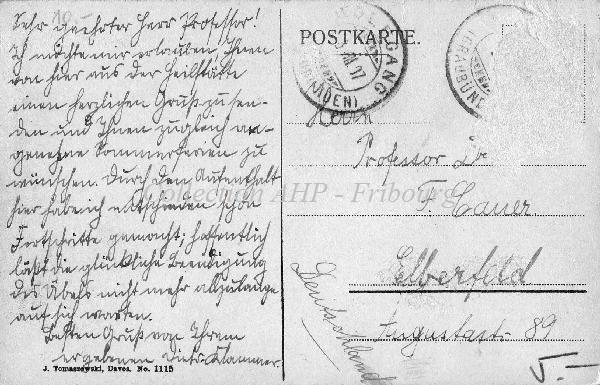 Sehr geehrter Herr Professor!
Ich möchte mir erlauben, Ihnen
von hier aus der Heilstätte
einen herzlichen Gruß zu sen-
den und Ihnen zugleich an-
genehme Sommerferien zu
wünschen. Durch den Aufenthalt
hier habe ich entschieden schon
Fortschritte gemacht; hoffentlich
läßt die glückliche Beendigung
des Übels nicht mehr allzulange
auf sich warten.
Besten Gruß von Ihrem
ergebenen
J. Tomaszewski, Davos. No. 1115
POSTKARTE.
Herrn
Professor Dr
F. Cauer.
Elberfeld
Augustastr. 89
Deutschland
5.-
(GRAUBÜND
Collection AHP - Fribourg